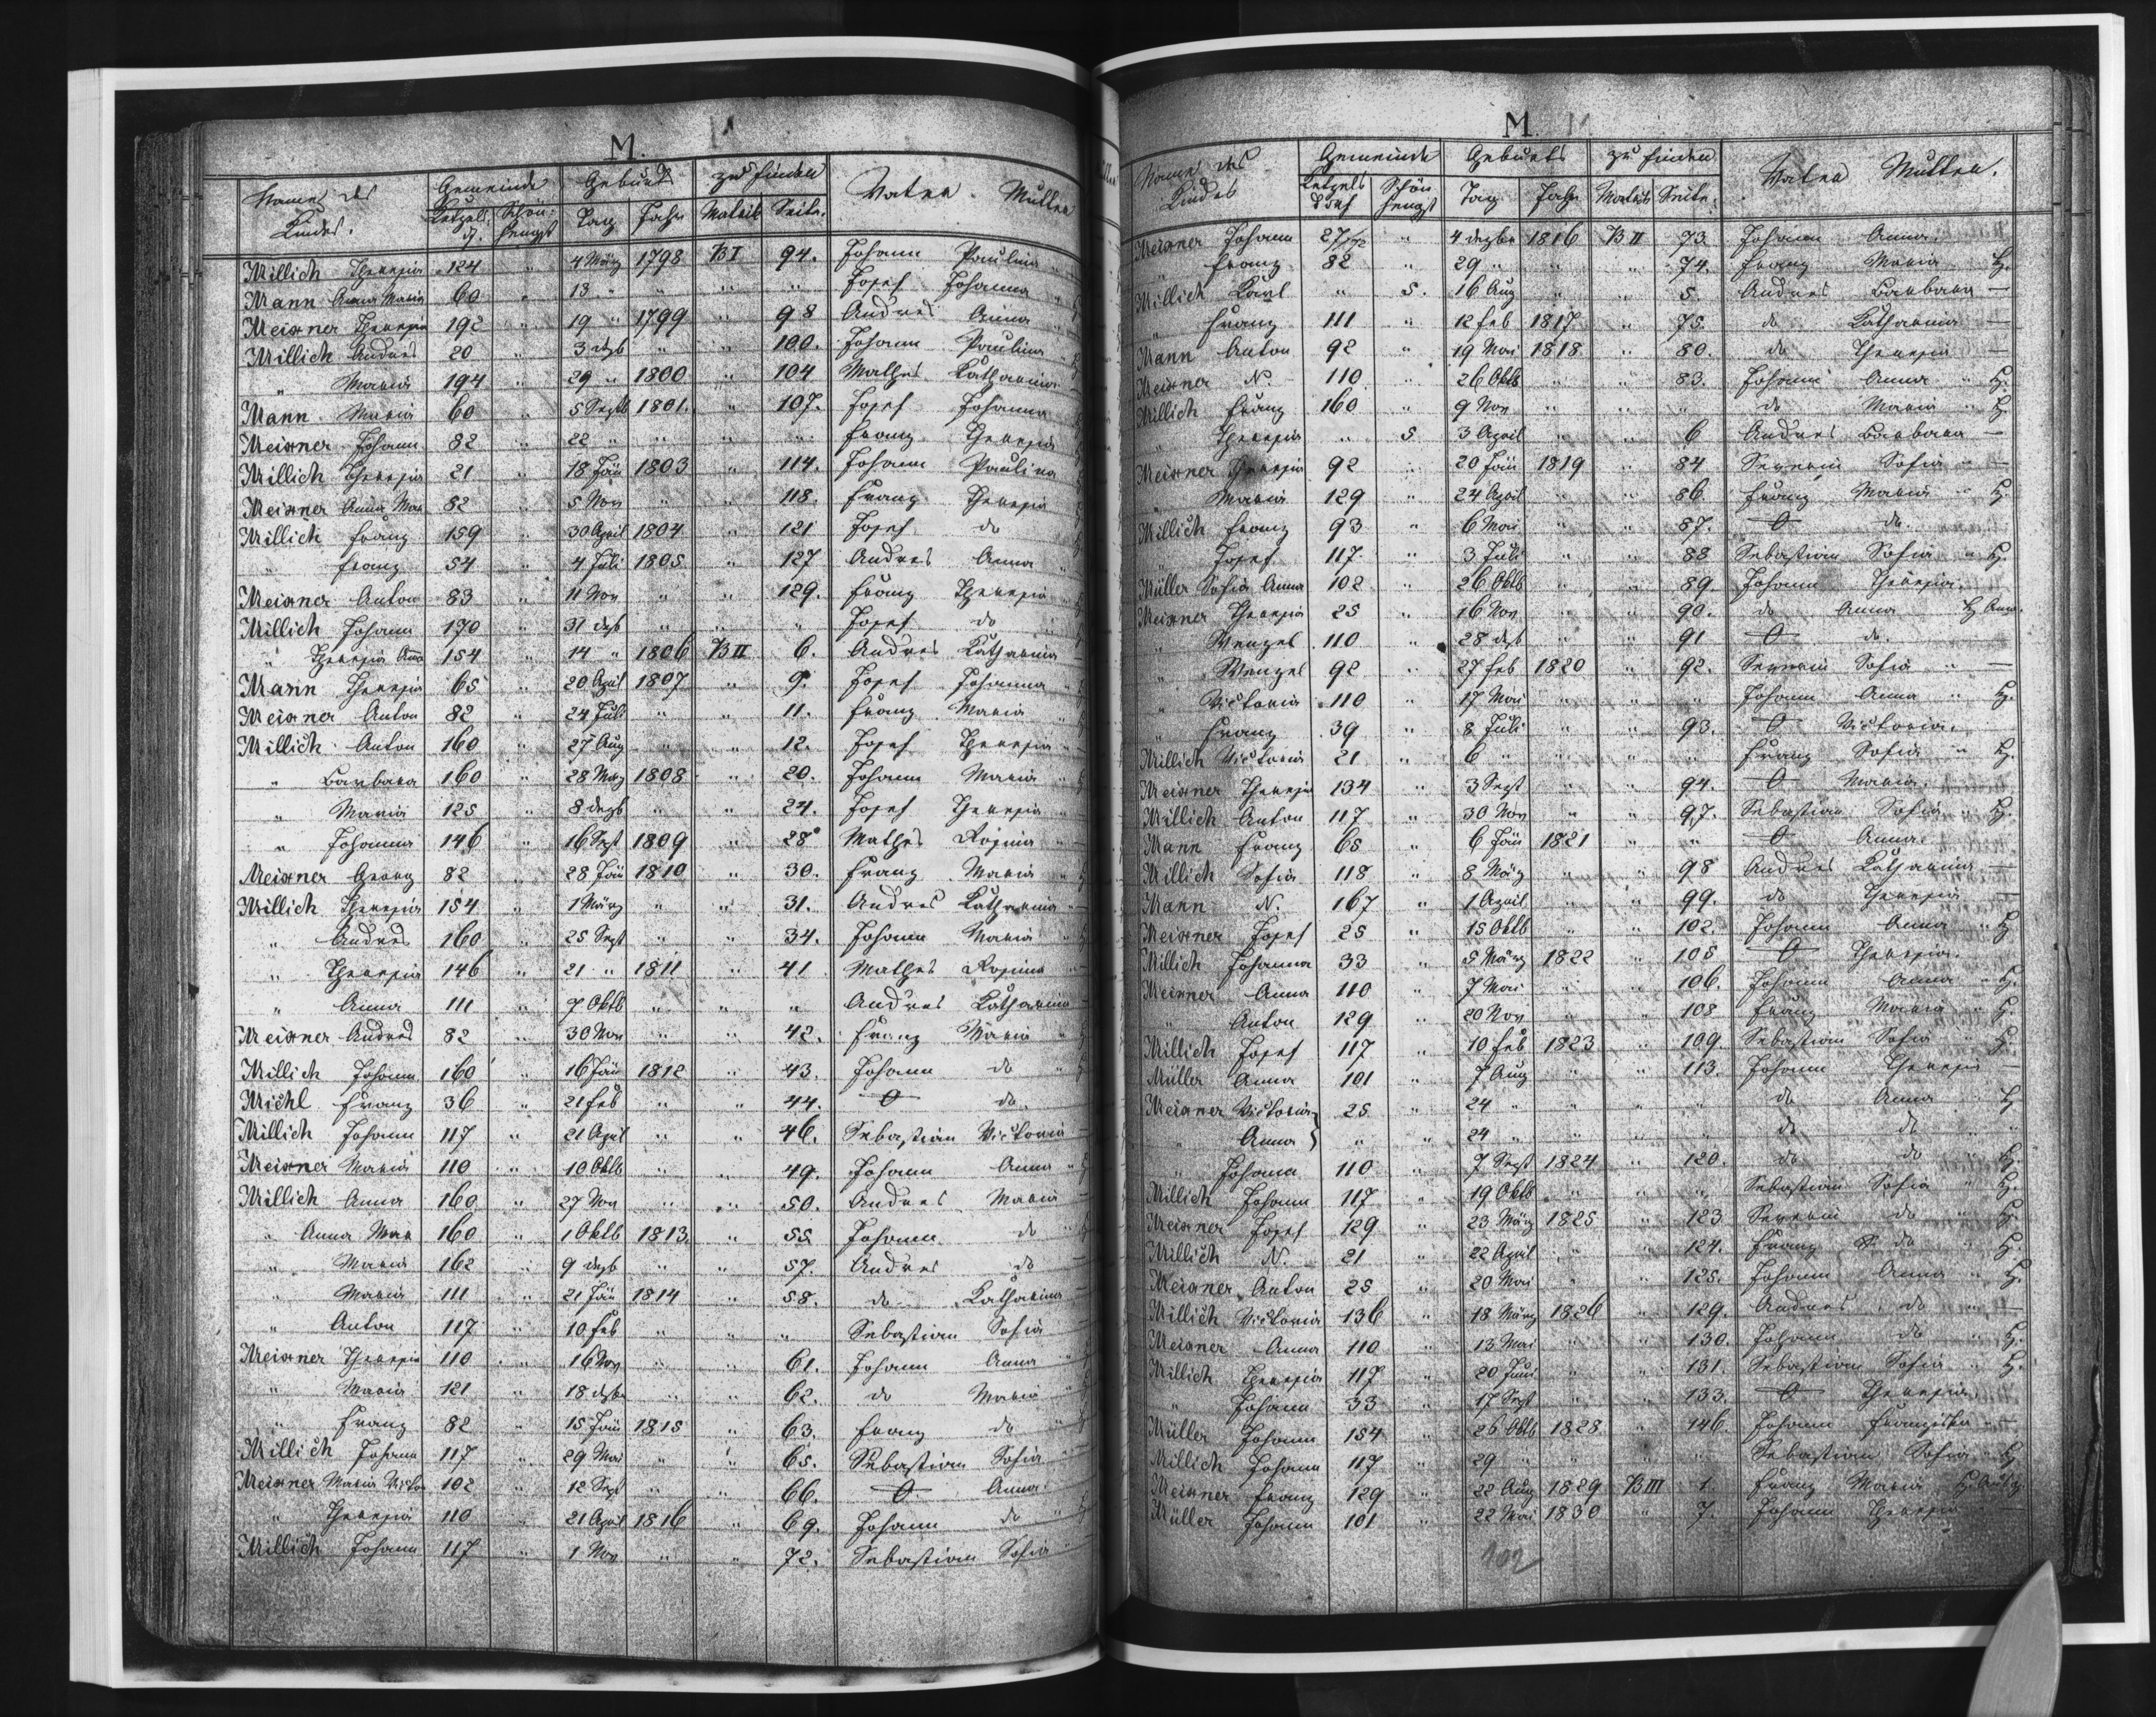 M.
Name des Kindes. Gemeinde Geburts zu finden Vater. Mutter
Ketzels d. Schön-hengst Tag Jahr Matrik Seite.
Millich Theresia 124 " 4 März 1798 B I 94. Johann Paulina
Mann Anna Maria 60 " 13 " " " " Josef Johanna
Meixner Theresia 192 " 19 " 1799 " 98 Andres Anna
Millich Andres 20 " 3 dezb " " 100. Johann Paulina
" Maria 194 " 29 " 1800 " 104 Mathes Katharina
Mann Maria 60 " 5 Septb 1801. " 107. Josef Johanna
Meixner Johann 82 " 22 " " " " Franz Theresia
Millich Theresia 21 " 18 Jän 1803 " 114. Johann Paulina
Meixner Anna Mar 82 " 5 Nov " " 118. Franz Theresia
Millich Franz 159 " 30 April 1804 " 121 Josef do
" Franz 54 " 4 Juli 1805 " 127 Andres Anna
Meixner Anton 83 " 11 Nov " " 129. Franz Theresia
Millich Johann 170 " 31 dezb " " " Josef do
" Theresia Anna 154 " 14 " 1806 B II 6. Andres Katharina
Mann Theresia 65 " 20 April 1807 " 9. Josef Johanna
Meixner Anton 82 " 24 Juli " " 11. Franz Maria
Millich Anton 160 " 27 Aug " " 12. Josef Theresia
" Barbara 160 " 28 März 1808 " 20. Johann Maria
" Maria 125 " 8 dezb " " 24. Josef Theresia
" Johanna 146 " 16 Sept 1809 " 28 Mathes Rosina
Meixner Georg 82 " 28 Jän 1810 " 30. Franz Maria
Millich Theresia 154 " 1 März " " 31. Andres Katharina
" Andres 160 " 25 Sept " " 34. Johann Maria
" Theresia 146 " 21 " 1811 " 41 Mathes Rosina
" Anna 111 " 7 Oktb " " " Andres Katharina
Meixner Andres 82 " 30 Nov " " 42. Franz Maria
Millich Johann 160 " 16 Jän 1812 " 43. Johann do
Michl Franz 36 " 21 Feb " " 44. O do
Millich Johann 117 " 21 April " " 46. Sebastian Victoria
Meixner Maria 110 " 10 Oktb " " 49. Johann Anna
Millich Anna 160 " 27 Nov " " 50. Andres Maria
" Anna Mar 160 " 1 Oktb 1813. " 55 Johann do
" Maria 162 " 9 dezb " " 57. Andres do
" Maria 111 " 21 Jän 1814 " 58. do Katharina
" Anton 117 " 10 Feb " " " Sebastian Sofia
Meixner Theresia 110 " 16 Nov " " 61. Johann Anna
" Maria 121 " 18 dezb " " 62. do Maria
" Franz 82 " 15 Jän 1815 " 63. Franz do
Millich Johann 117 " 29 Mai " " 65. Sebastian Sofia
Meixner Maria Victor 102 " 12 Sept " " 66. O Anna
" Theresia 110 " 21 April 1816 " 69. Johann do
Millich Johann 117 " 1 Nov " " 72. Sebastian Sofia
M.
Name des Kindes Gemeinde Geburts zu finden Vater Mutter.
Ketzels dorf Schön hengst Tag Jahr Matrik Seite.
Meixner Johann 27/172 " 4 dezbr 1816 B II 73 Johann Anna.
" Franz 82 " 29 " " " 74. Franz Maria H.
Millich Karl " S. 16 Aug " " 5. Andres Barbara —
" Franz 111 " 12 Feb 1817 " 75. do Katharina —
Mann Anton 92 " 19 Mai 1818 " 80. do Theresia —
Meixner N. 110 " 26 Oktb " " 83. Johann Anna " H.
Millich Franz 160 " 9 Nov " " " do Maria " H
" Theresia " S 3 April " " 6 Andres Barbara —
Meixner Theresia 92 " 20 Jän 1819 " 84 Severin Sofia " —
" Maria 129 " 24 April " " 86. Franz Maria " H.
Millich Franz 93 " 6 Mai " " 87. O do.
" Josef 117. " 3 Juli " " 88 Sebastian Sofia " H.
Müller Sofia Anna 102 " 26 Oktb " " 89. Johann Theresia.
Meixner Theresia 25 " 16 Nov " " 90. do Anna
" Wenzel 110 " 28 dezb " " 91 O do.
" Wenzel 92 " 27 Feb 1820 " 92. Severin Sofia " —
" Victoria 110 " 17 Mai " " " Johann Anna " H.
" Franz 39 " 8 Juli " " 93. O Victoria.
Millich Victoria 21 " 6 " " " " Franz Sofia " H.
Meixner Theresia 134 " 3 Sept " " 94. O Maria.
Millich Anton 117 " 30 Nov " " 97. Sebastian Sofia " H.
Mann Franz 65 " 6 Jän 1821 " " O Anna.
Millich Sofia 118 " 8 März " " 98 Andres Katharina —
Mann N. 167 " 1 April " " 99. do Theresia —
Meixner Josef 25 " 15 Oktb " " 102 Johann Anna " H
Millich Johanna 33 " 5 März 1822 " 105 O Theresia.
Meixner Anna 110 " 7 Mai " " 106. Johann Anna " H.
" Anton 129 " 20 Nov " " 108 Franz Maria " H.
Millich Josef 117 " 10 Feb 1823 " 109. Sebastian Sofia " H.
Müller Anna 101 " 7 Aug " " 113. Johann Theresia —
Meixner Victoria } 25 " 24 " " " " do Anna " H
" Anna } " " 24 " " " " do do " "
" Johann 110 " 7 Sept 1824 " 120. do do " H.
Millich Johann 117 " 19 Oktb " " " Sebastian Sofia " H.
Meixner Josef 129 " 23 März 1825 " 123 Severin do " H.
Millich N. 21 " 22 April " " 124. Franz do " H.
Meixner Anton 25 " 20 Mai " " 125. Johann Anna " H.
Millich Victoria 136 " 18 März 1826 " 129. Andres do " —
Meixner Anna 110 " 13 Mai " " 130. Johann do " H.
Millich Theresia 117 " 20 Juni " " 131. Sebastian Sofia " H.
" Johann 33 " 17 Sept " " 133. O Theresia.
Müller Johann 154 " 26 Oktb 1828 " 146. Johann Franziska " —
Millich Johann 117 " 29 " " " " Sebastian Sofia " H
Meixner Franz 129 " 22 Aug 1829 B III 1. Franz Maria
Müller Johann 101 " 22 Mai 1830 " 7. Johann Theresia
102